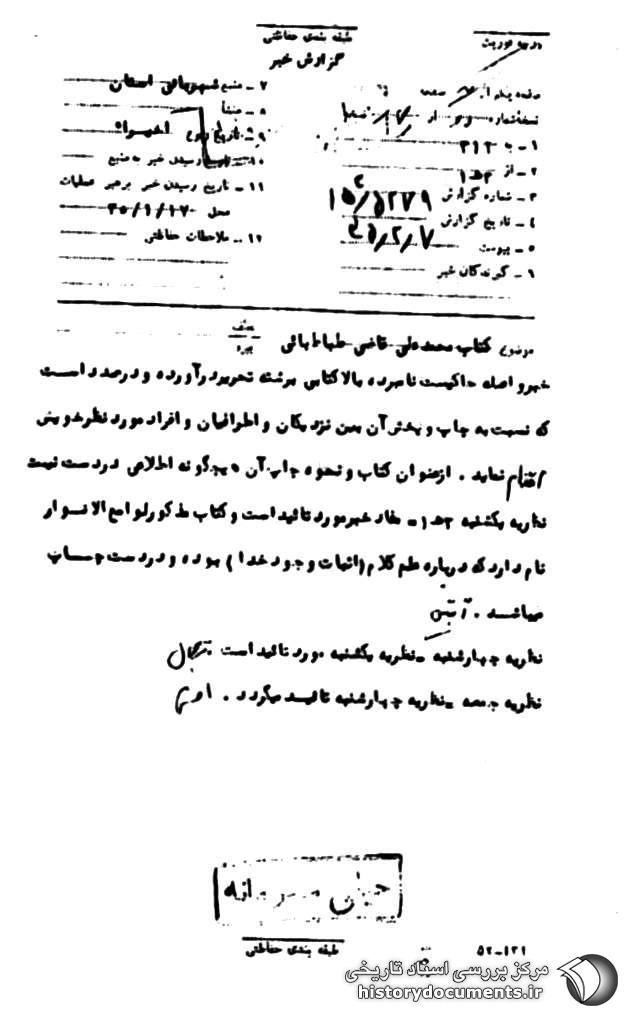 طبقه بندی حفاظتی
گزارش خبر
درجه فوریت
۱ - به ۳۱۲
۲ - از ۱۵۳
۳ - شماره گزارش ۱۵۲۷۹
۴ - تاریخ گزارش ۳۵/۲/۷
۵ - پیوست
۶ - گیرندگان خبر
۷ - منبع شهربانی استان
۸ - منشأ
۹ - تاریخ وقوع اخیراً
۱۰ - تاریخ رسیدن خبر به منبع
۱۱ - تاریخ رسیدن خبر برهبر عملیات
محل ۳۵/۱/۱۷
۱۲ - ملاحظات حفاظتی
موضوع کتاب محمدعلی قاضی طباطبائی
خبرواصله حاکیست نامبرده بالا کتابی برشته تحریر درآورده و درصدد است
که نسبت به چاپ و پخش آن بین نزدیکان و اطرافیان و افراد مورد نظر خویش
اقدام نماید . ازعنوان کتاب و نحوه چاپ آن هیچگونه اطلاعی در دست نیست
نظریه یکشنبه مفاد خبر مورد تائید است و کتاب مذکور لوامع الانوار
نام دارد که درباره علم کلام (اثبات وجود خدا) بوده و در دست چاپ
میباشد .
نظریه چهارشنبه - نظریه یکشنبه مورد تائید است .
نظریه جمعه - نظریه چهارشنبه تائید میگردد .
خیلی محرمانه
طبقه بندی حفاظتی
۵۲-۱۲۱
مرکز بررسی اسناد تاریخی
historydocuments.ir